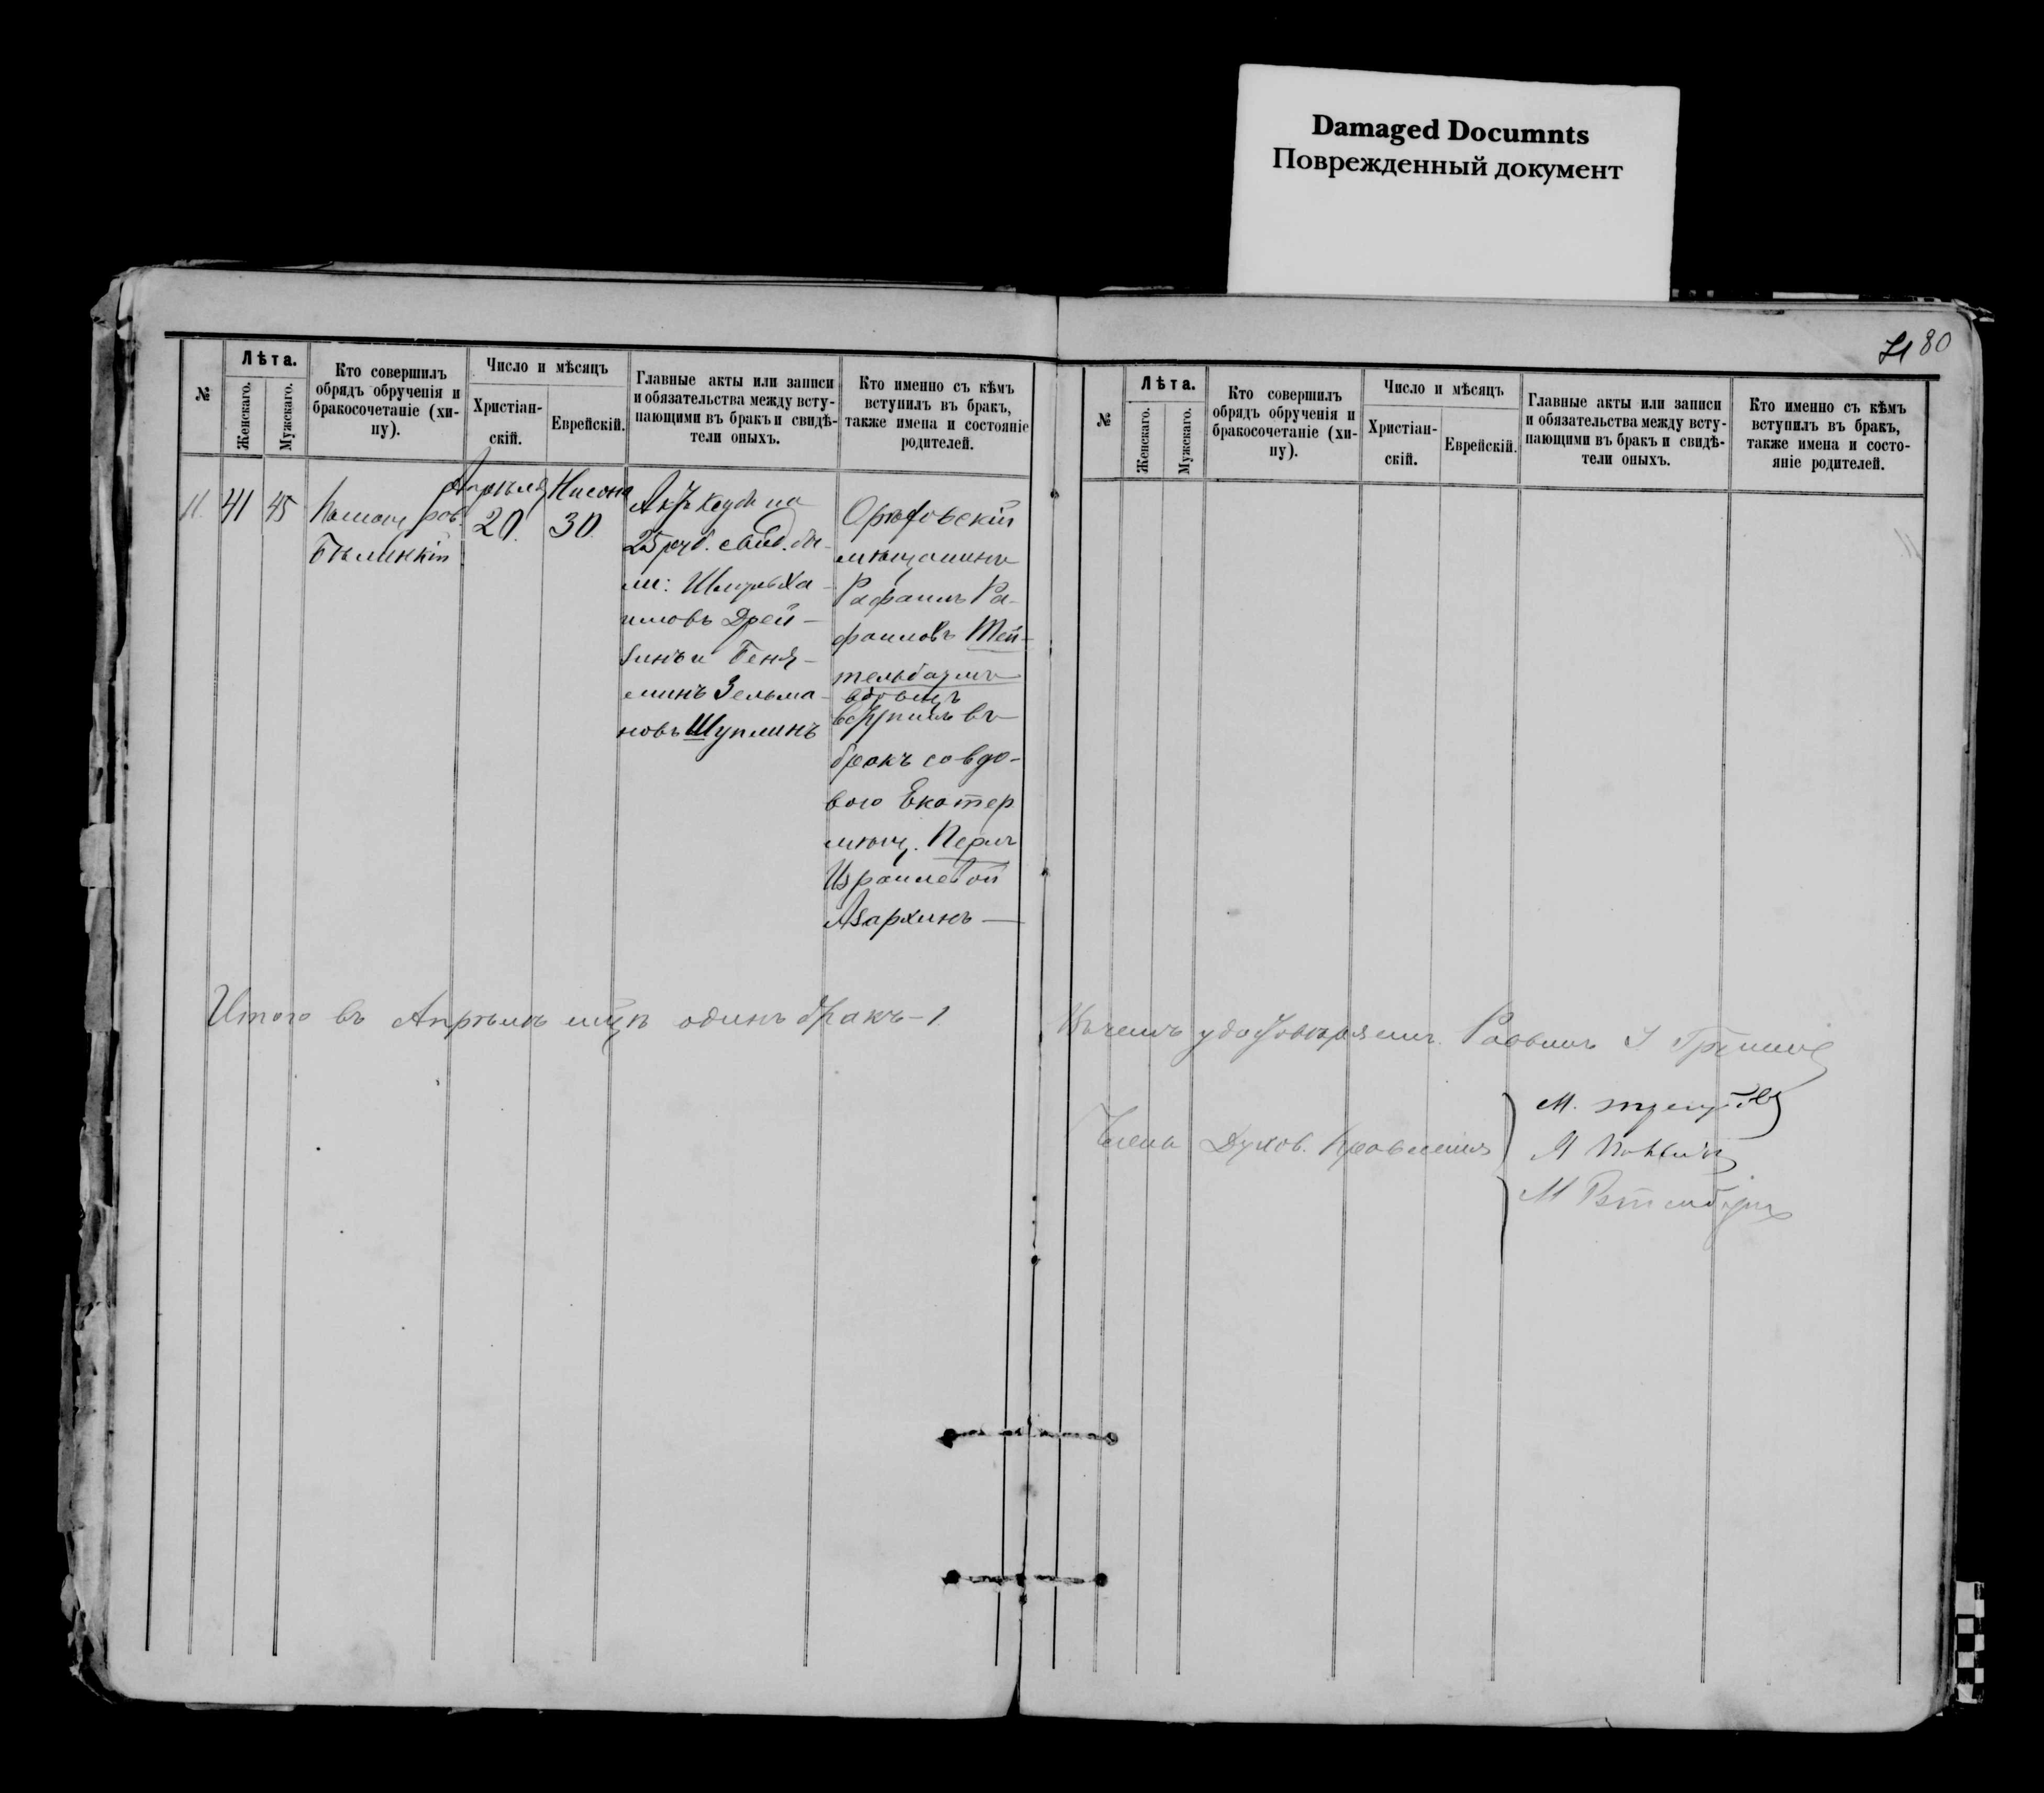 Damaged Documnts
Поврежденный документ
80
№
Лѣта.
Женскаго.
Мужскаго.
Кто совершилъ
обрядъ обрученія и
бракосочетаніе (хи-
пу).
Число и мѣсяцъ
Христіан-
скій.
Еврейскій.
Главные акты или записи
и обязательства между всту-
пающими въ бракъ и свидѣ-
тели оныхъ.
Кто именно съ кѣмъ
вступилъ въ бракъ,
также имена и состояніе
родителей.
11. 41 45
Помощ. рав.
Бѣлинкій
Апрѣля
20.
Нисона
30.
Актъ кедуб. на
25 руб. свид. бы-
ли: Шмуль Ха-
имовъ Дрей-
зинъ и Беня-
минъ Зельма-
новъ Шуплинъ
мѣщанинъ
Рафаилъ Ра-
фаиловъ Тей-
тельбаумъ
вдовецъ
вступилъ въ
бракъ со вдо-
вою Екатер
мѣщ. Перлъ
Израилевой
Азархинъ
Итого въ Апрѣлѣ м-цѣ одинъ бракъ-1.
№
Лѣта.
Женскаго.
Мужскаго.
Кто совершилъ
обрядъ обрученія и
бракосочетаніе (хи-
пу).
Число и мѣсяцъ
Христіан-
скій.
Еврейскій.
Главные акты или записи
и обязательства между всту-
пающими въ бракъ и свидѣ-
тели оныхъ.
Кто именно съ кѣмъ
вступилъ въ бракъ,
также имена и состо-
яніе родителей.
удостовѣряемъ. Раввинъ
Члены Духов. Правленія
М.
М